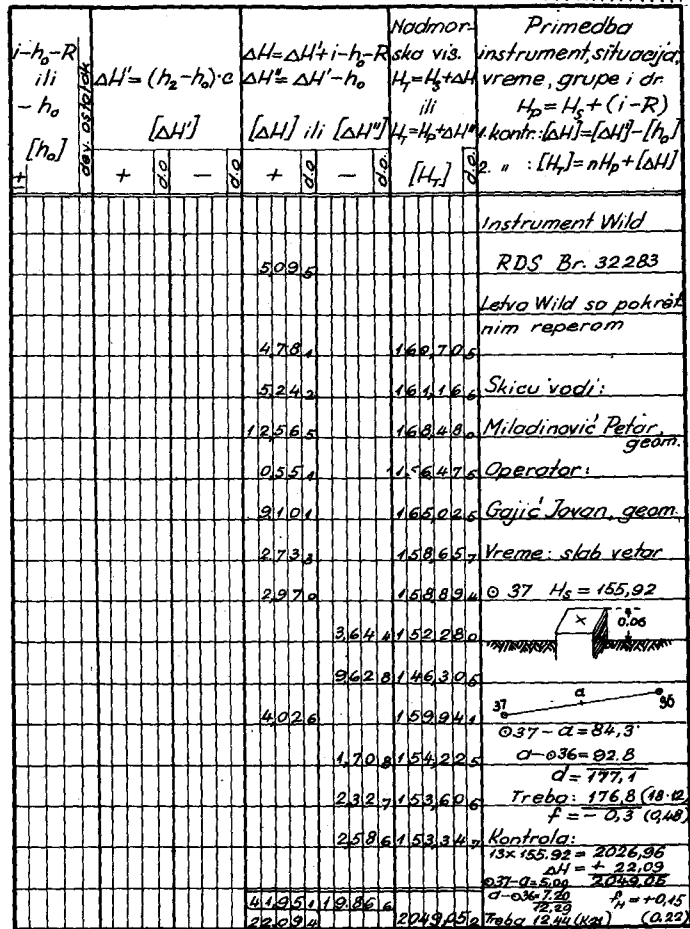 i-h₀-R
ili
- h₀
[h₀]
+
dev. ostatak
ΔH' = (h₂-h₀)·c
[ΔH']
+ d.o - d.o
ΔH=ΔH'+i-h₀-R
ΔH''= ΔH'-h₀
[ΔH] ili [ΔH'']
+ d.o - d.o.
Nadmor-
ska vis.
H_T=H_S+ΔH
ili
H_T=H_P+ΔH''
[H_T] d.o.
Primedba
instrument, situacija,
vreme, grupe i dr.
H_P = H_S + (i-R)
1. kontr.: [ΔH]=[ΔH']-[h₀]
2. " : [H_T]=nH_P+[ΔH]
Instrument Wild
5,09 5 RDS Br. 32283
Letva Wild sa pokret
nim reperom
4,78 1 160,70 5
5,24 2 161,16 6 Skicu vodi:
12,56 5 168,48 0 Miladinović Petar,
geom.
0,55 1 156,47 5 Operator:
9,10 1 165,02 5 Gajić Jovan, geom.
2,73 3 158,65 7 Vreme: slab vetar
2,97 0 158,89 4 ⊙ 37 H_S = 155,92
0.06
3,64 4 152,28 0
9,62 8 146,30 5
37 a 36
4,02 6 159,94 1
⊙37 - a = 84,3
1,70 8 154,22 5 a-⊙36 = 92.8
d = 177,1
2,32 7 153,60 6 Treba: 176,8 (18·12)
f = - 0,3 (0,48)
2,58 6 153,34 7 Kontrola:
13x155.92 = 2026,96
ΔH = + 22,09
⊙37-a=5,00 2049,05
41,95 1 19,86 6 a-⊙36=7.20 f_H = +0,15
12,29
22,09 4 2049,05 2 Treba 12,44 (K21) (0.22)